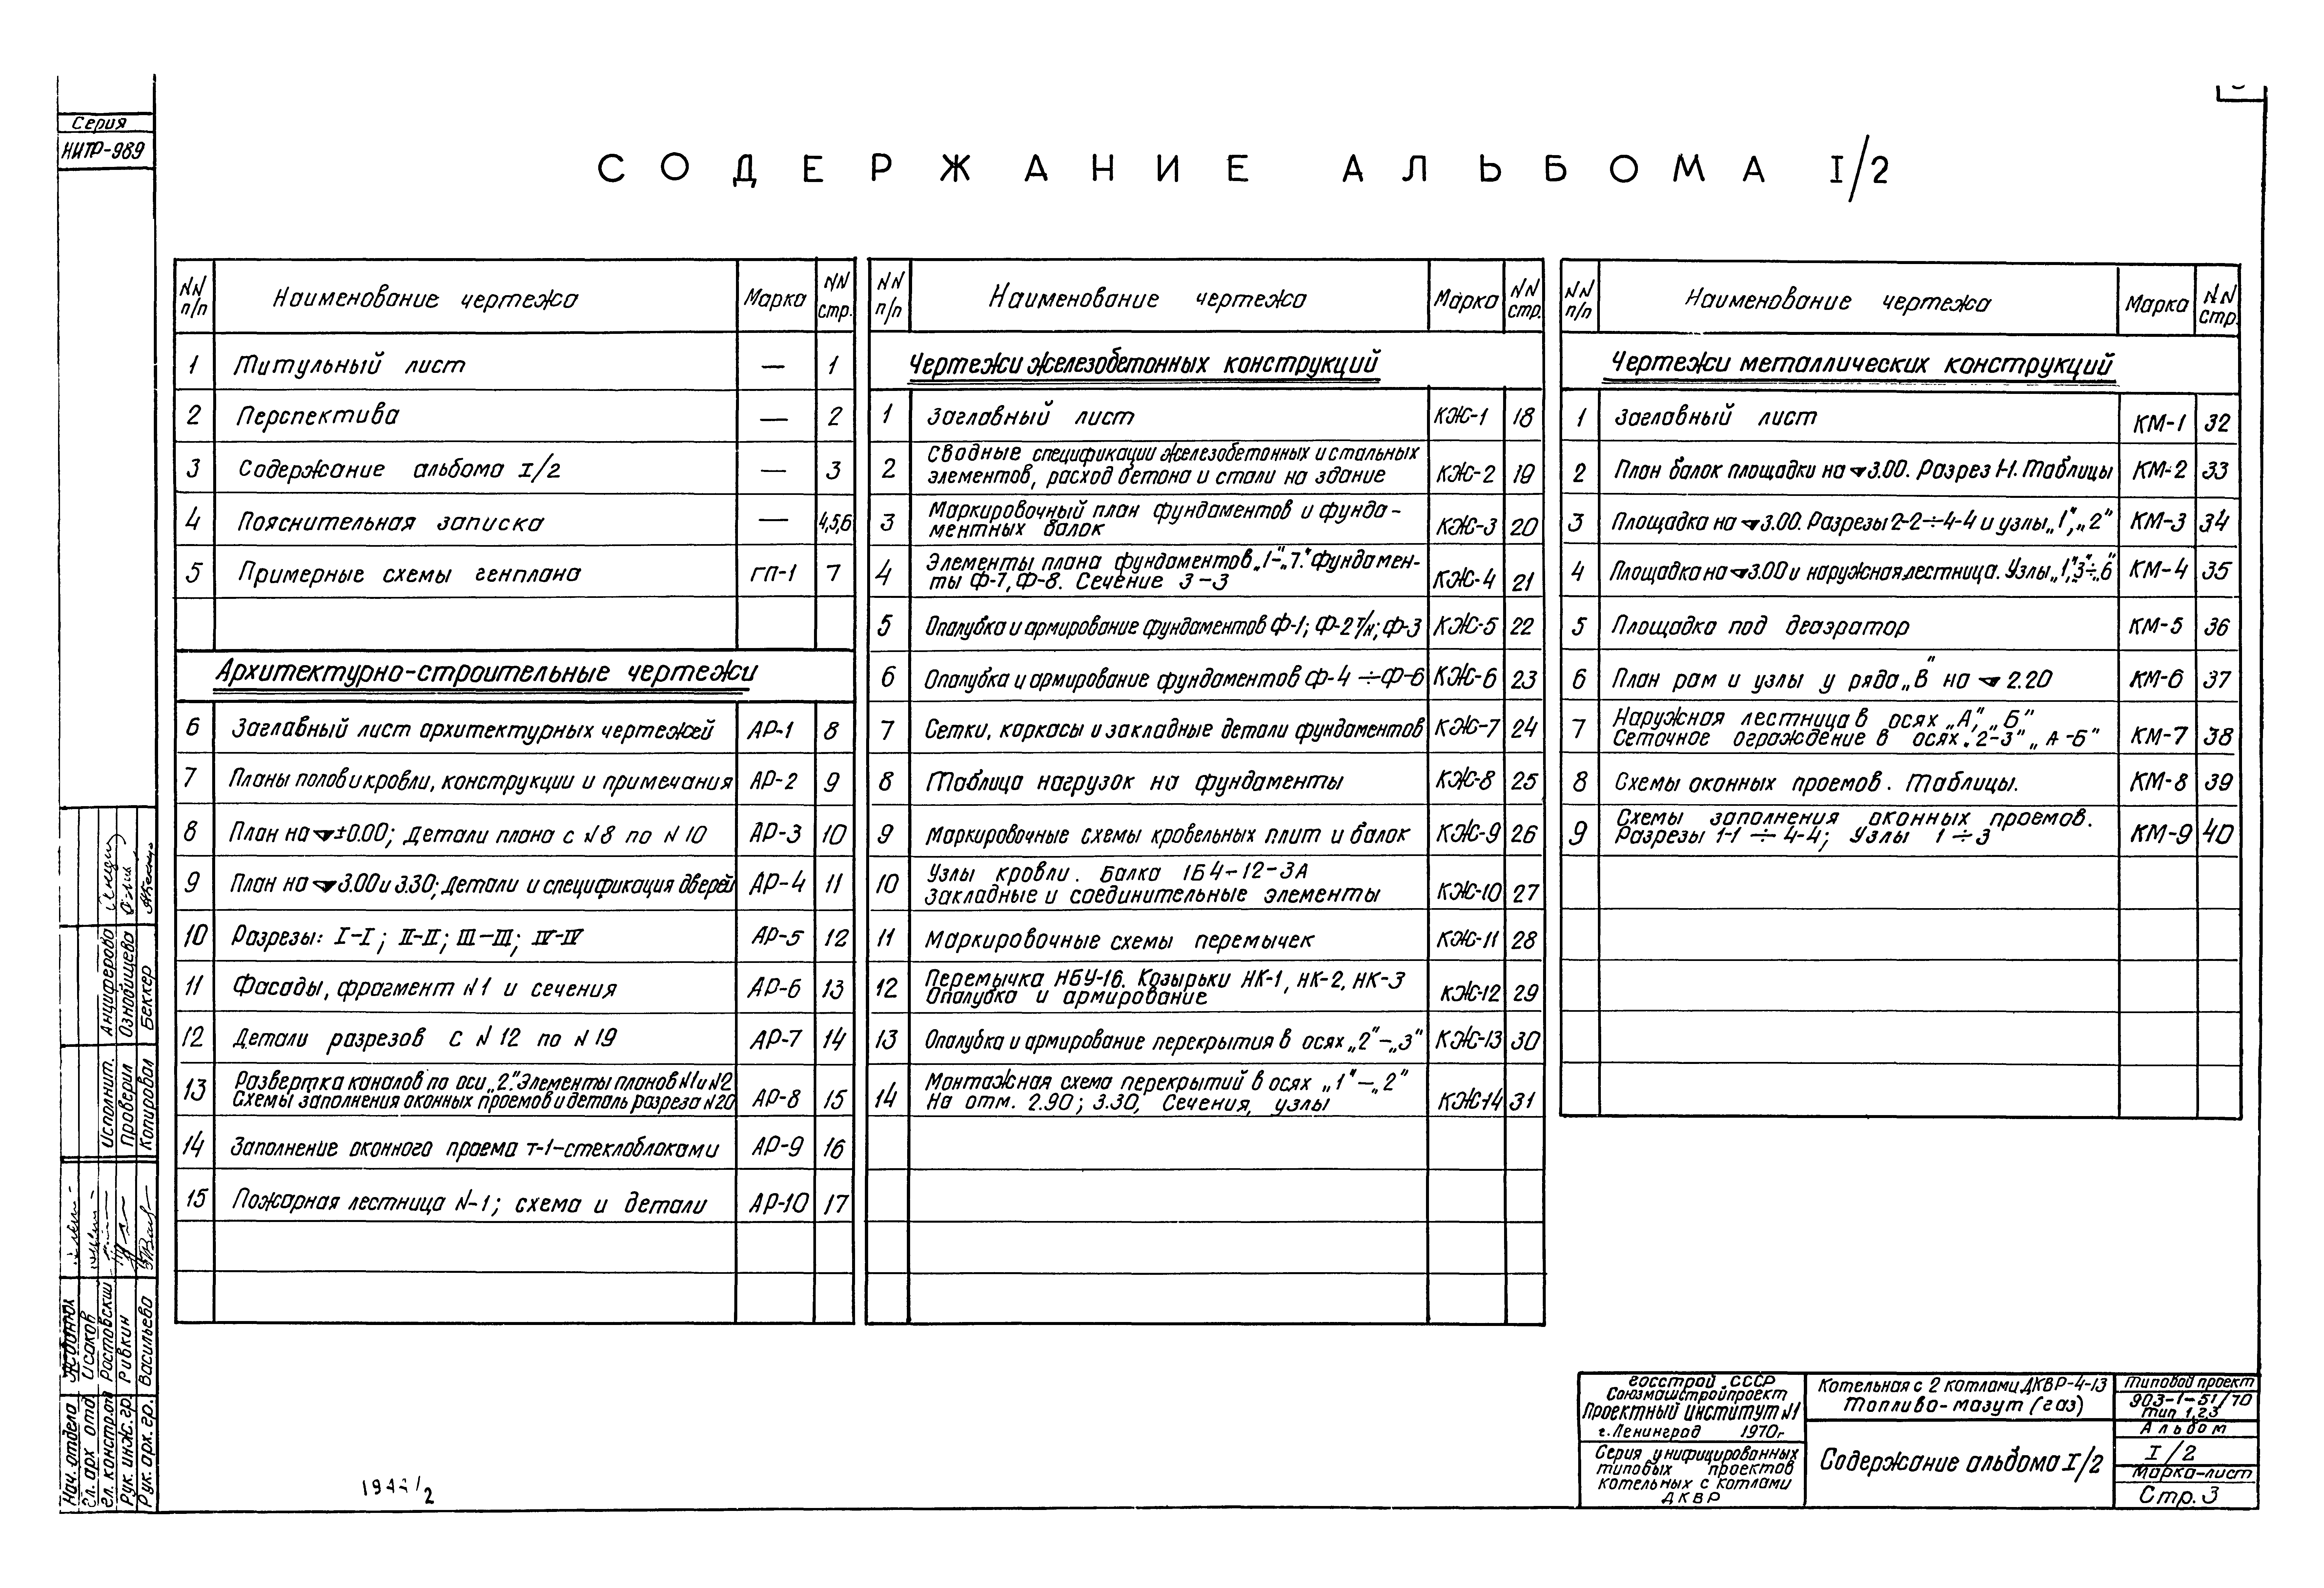 Серия
НИТР-989
СОДЕРЖАНИЕ АЛЬБОМА I/2
NN п/п Наименование чертежа Марка NN стр.
1 Титульный лист — 1
2 Перспектива — 2
3 Содержание альбома I/2 — 3
4 Пояснительная записка — 4,5,6
5 Примерные схемы генплана ГП-1 7
Архитектурно-строительные чертежи
6 Заглавный лист архитектурных чертежей АР-1 8
7 Планы полов и кровли, конструкции и примечания АР-2 9
8 План на ±0.00; Детали плана с N 8 по N 10 АР-3 10
9 План на 3.00 и 3.30; Детали и спецификация дверей АР-4 11
10 Разрезы: I-I; II-II; III-III; IV-IV АР-5 12
11 Фасады, фрагмент N1 и сечения АР-6 13
12 Детали разрезов с N 12 по N 19 АР-7 14
13 Развертка каналов по оси „2". Элементы планов N1 и N2
Схемы заполнения оконных проемов и деталь разреза N20 АР-8 15
14 Заполнение оконного проема т-1-стеклоблоками АР-9 16
15 Пожарная лестница N-1; схема и детали АР-10 17
NN п/п Наименование чертежа Марка NN стр.
Чертежи железобетонных конструкций
1 Заглавный лист КЖ-1 18
2 Сводные спецификации железобетонных и стальных
элементов, расход бетона и стали на здание КЖ-2 19
3 Маркировочный план фундаментов и фунда-
ментных балок КЖ-3 20
4 Элементы плана фундаментов „1"-„7". Фундамен-
ты Ф-7, Ф-8. Сечение 3-3 КЖ-4 21
5 Опалубка и армирование фундаментов Ф-1; Ф-2 т/н; Ф-3 КЖ-5 22
6 Опалубка и армирование фундаментов Ф-4 ÷ Ф-6 КЖ-6 23
7 Сетки, каркасы и закладные детали фундаментов КЖ-7 24
8 Таблица нагрузок на фундаменты КЖ-8 25
9 Маркировочные схемы кровельных плит и балок КЖ-9 26
10 Узлы кровли. Балка 1Б4-12-3А
Закладные и соединительные элементы КЖ-10 27
11 Маркировочные схемы перемычек КЖ-11 28
12 Перемычка НБУ-16. Козырьки НК-1, НК-2, НК-3
Опалубка и армирование КЖ-12 29
13 Опалубка и армирование перекрытия в осях „2"-„3" КЖ-13 30
14 Монтажная схема перекрытий в осях „1"-„2"
На отм. 2.90; 3.30, Сечения, узлы КЖ-14 31
NN п/п Наименование чертежа Марка NN стр.
Чертежи металлических конструкций
1 Заглавный лист КМ-1 32
2 План балок площадки на 3.00. Разрез 1-1. Таблицы КМ-2 33
3 Площадка на 3.00. Разрезы 2-2÷4-4 и узлы „1", „2" КМ-3 34
4 Площадка на 3.00 и наружная лестница. Узлы „1", „3"÷„6" КМ-4 35
5 Площадка под деаэратор КМ-5 36
6 План рам и узлы у ряда „В" на 2.20 КМ-6 37
7 Наружная лестница в осях „А", „Б"
Сеточное ограждение в осях „2-3" „А-Б" КМ-7 38
8 Схемы оконных проемов. Таблицы. КМ-8 39
9 Схемы заполнения оконных проемов.
Разрезы 1-1 ÷ 4-4; Узлы 1 ÷ 3 КМ-9 40
Исполнит. Анциферова
Проверил Ознобищева
Копировал Беккер
Нач. отдела
Гл. арх. отд. Исаков
Гл. констр. отд Ростовский
Рук. инж. гр. Ривкин
Рук. арх. гр. Васильева
Госстрой СССР
Союзмашстройпроект
Проектный институт N1
г. Ленинград 1970г
Серия унифицированных
типовых проектов
котельных с котлами
ДКВР
Котельная с 2 котлами ДКВР-4-13
Топливо-мазут (газ)
Содержание альбома I/2
Типовой проект
903-1-51/70
тип 1,2,3
Альбом
I/2
Марка-лист
Стр. 3